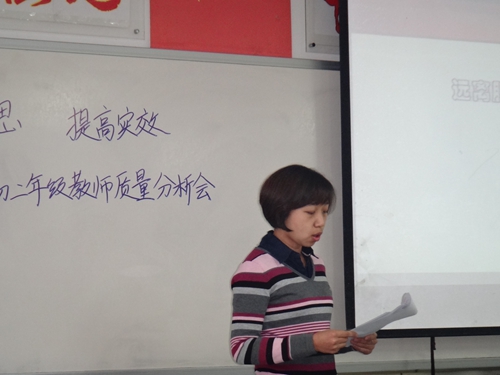 思 提高实效
初二年级教师质量分析会
远离